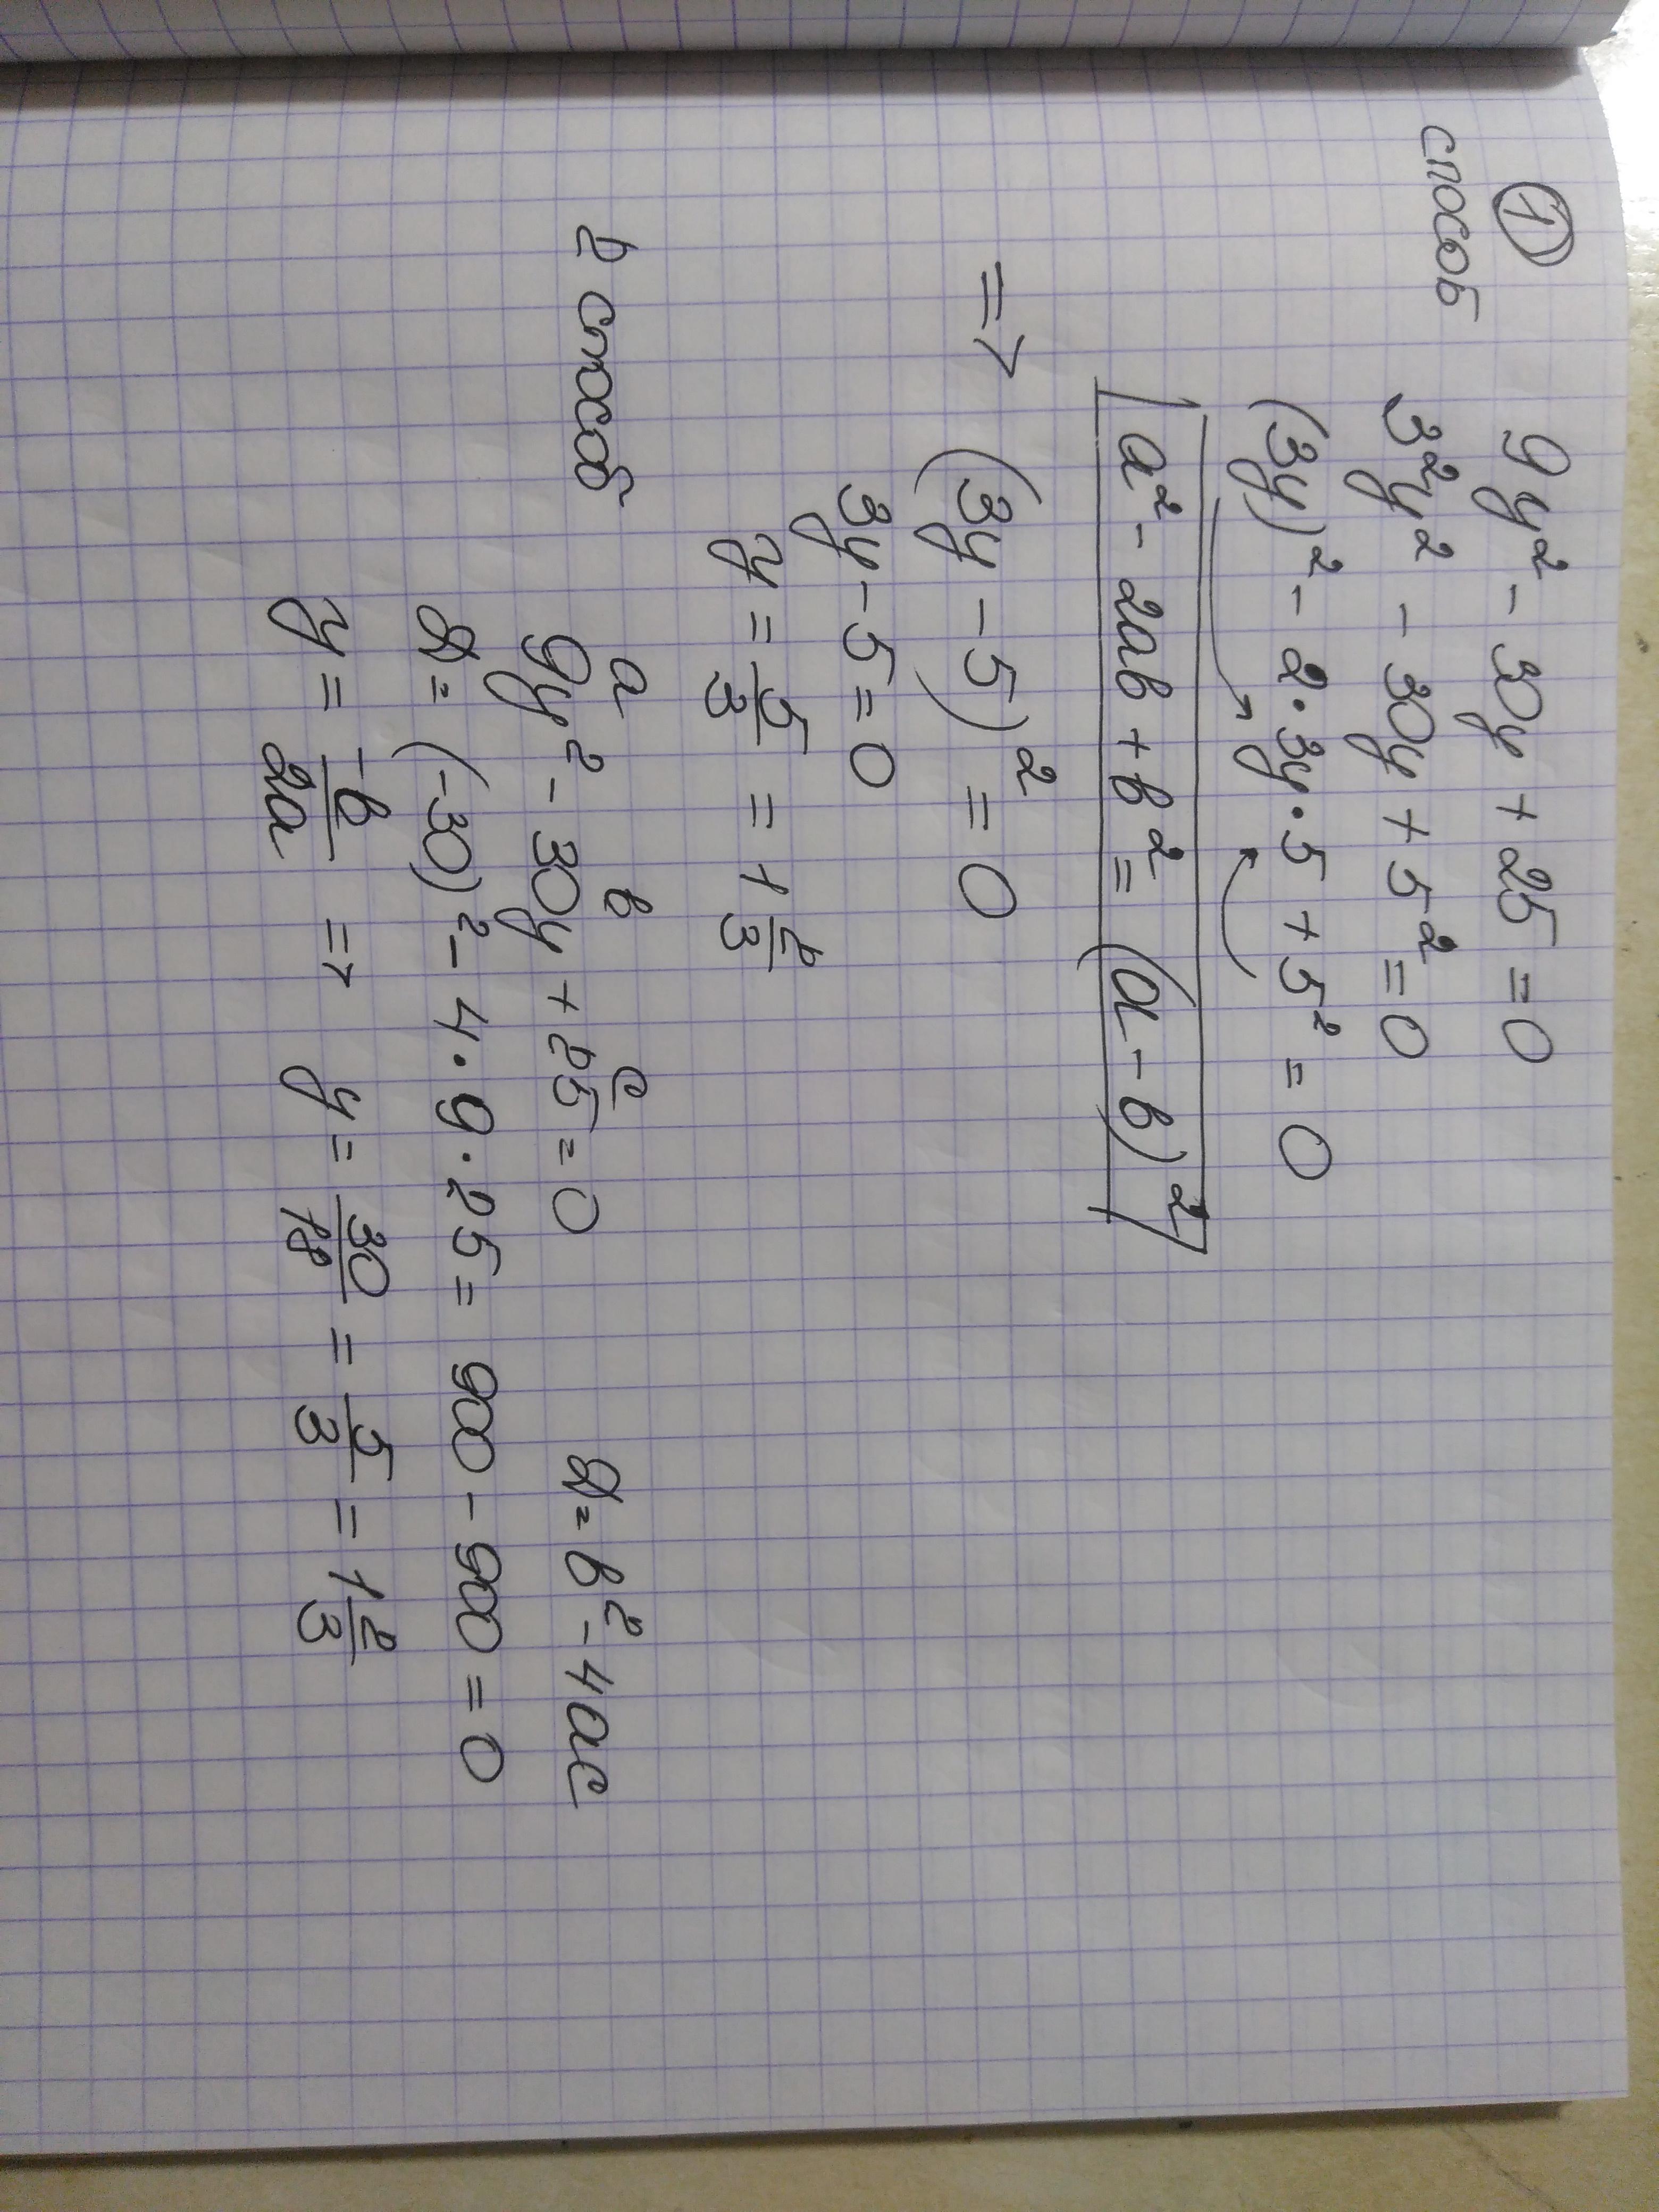 ① 9y² - 30y + 25 = 0
способ 3²y² - 30y + 5² = 0
(3y)² - 2·3y·5 + 5² = 0
a² - 2ab + b² = (a - b)²
=> (3y - 5)² = 0
3y - 5 = 0
y = 5/3 = 1 2/3
2 способ
a b c
9y² - 30y + 25 = 0 D = b² - 4ac
D = (-30)² - 4·9·25 = 900 - 900 = 0
y = -b/2a => y = 30/18 = 5/3 = 1 2/3